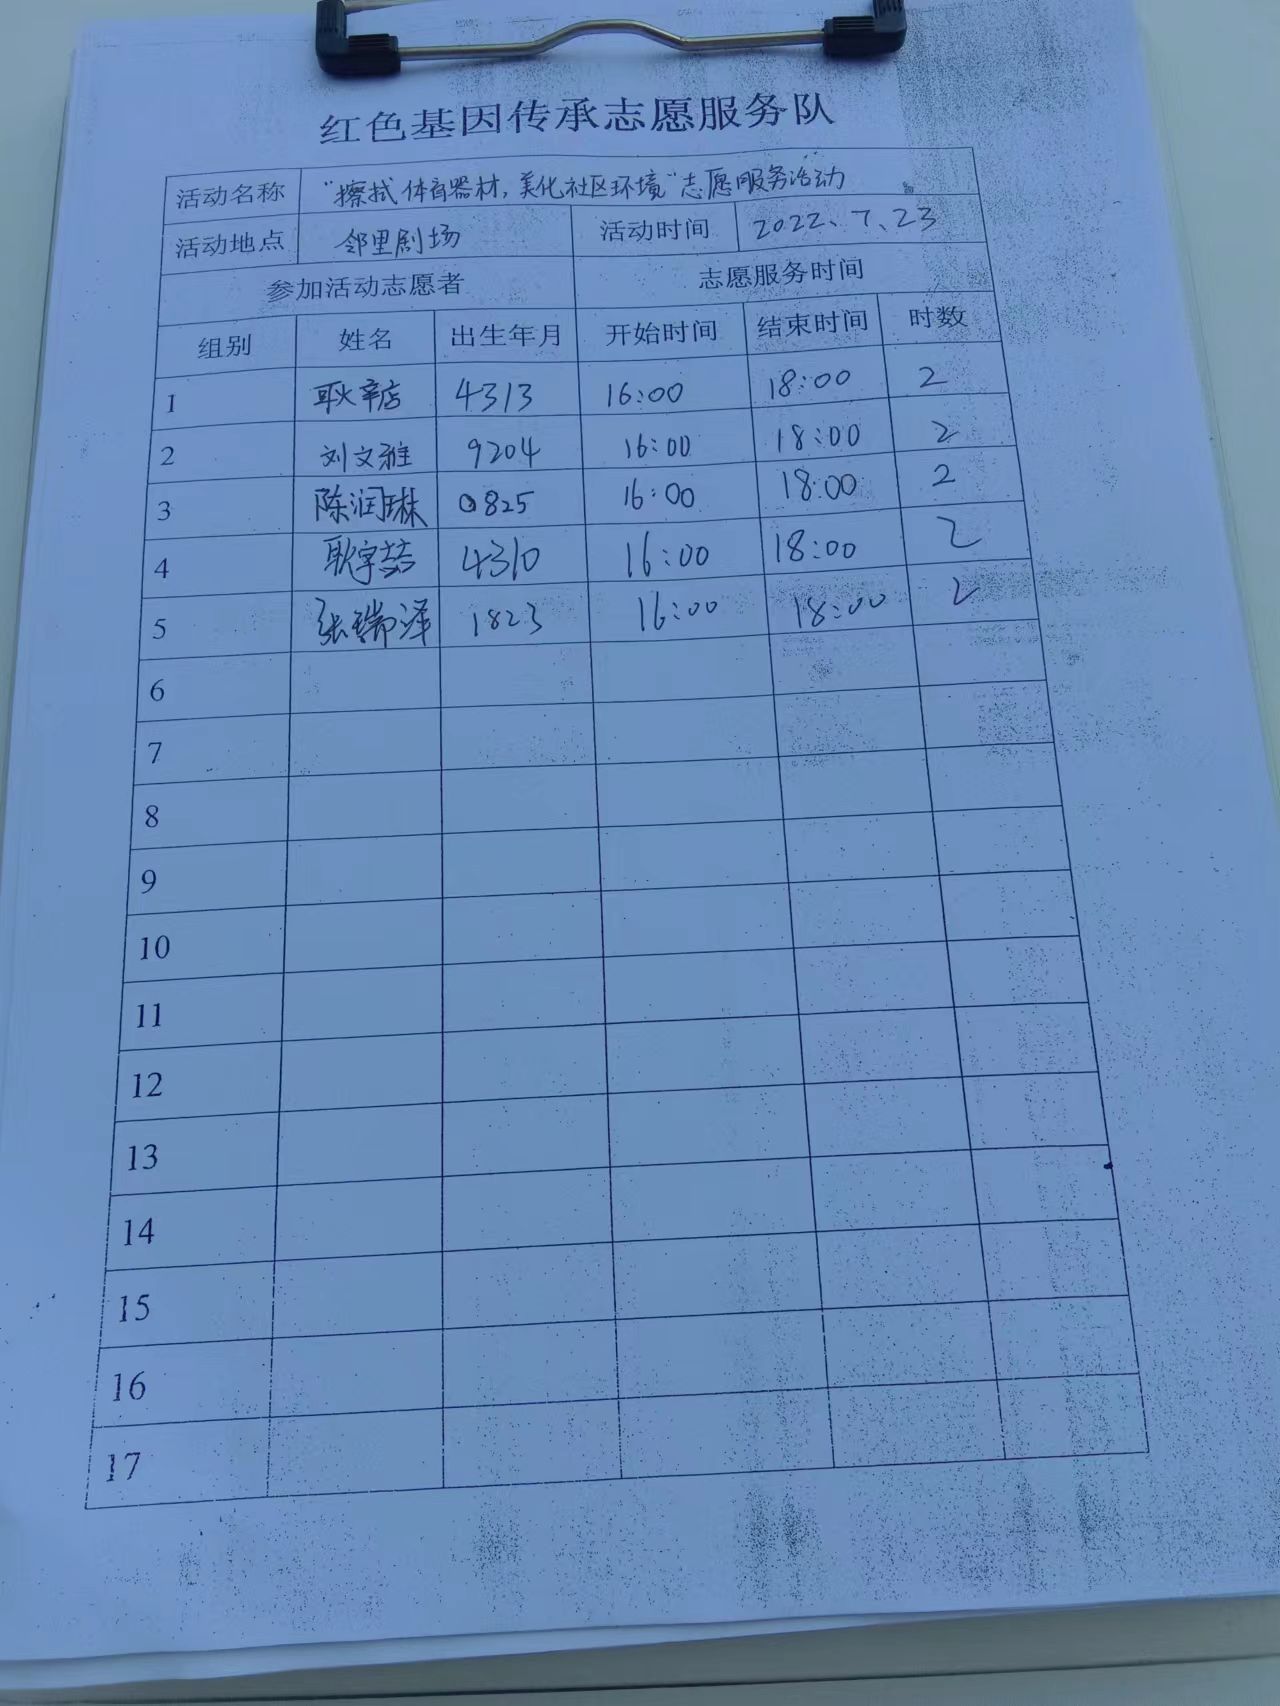 红色基因传承志愿服务队
活动名称 "擦拭体育器材,美化社区环境"志愿服务活动
活动地点 邻里剧场 活动时间 2022、7、23
参加活动志愿者 志愿服务时间
组别 姓名 出生年月 开始时间 结束时间 时数
1 4313 16:00 18:00 2
2 刘文雅 9204 16:00 18:00 2
3 陈润琳 0825 16:00 18:00 2
4 耿宇喆 4310 16:00 18:00 2
5 张瑞泽 1823 16:00 18:00 2
6
7
8
9
10
11
12
13
14
15
16
17